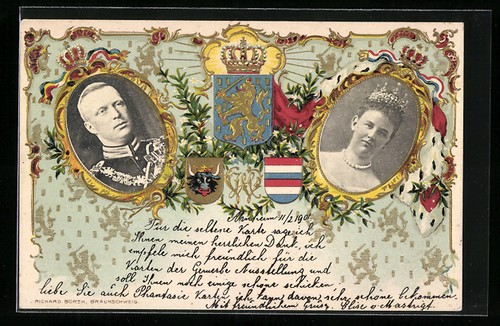 Arnheim 11/2 1901
Für die seltene Karte sage ich
Ihnen meinen herrlichen Dank, ich
empfele mich freundlich für die
Karten der Gewerbe Ausstellung und
soll Ihnen noch einige schöne schicken.
liebe Sie auch Phantasie Karten, ich kann davon sehr schöne bekommen.
Mit freundlichem Gruss. Elise v. Mastrigt
RICHARD BOREK, BRAUNSCHWEIG.